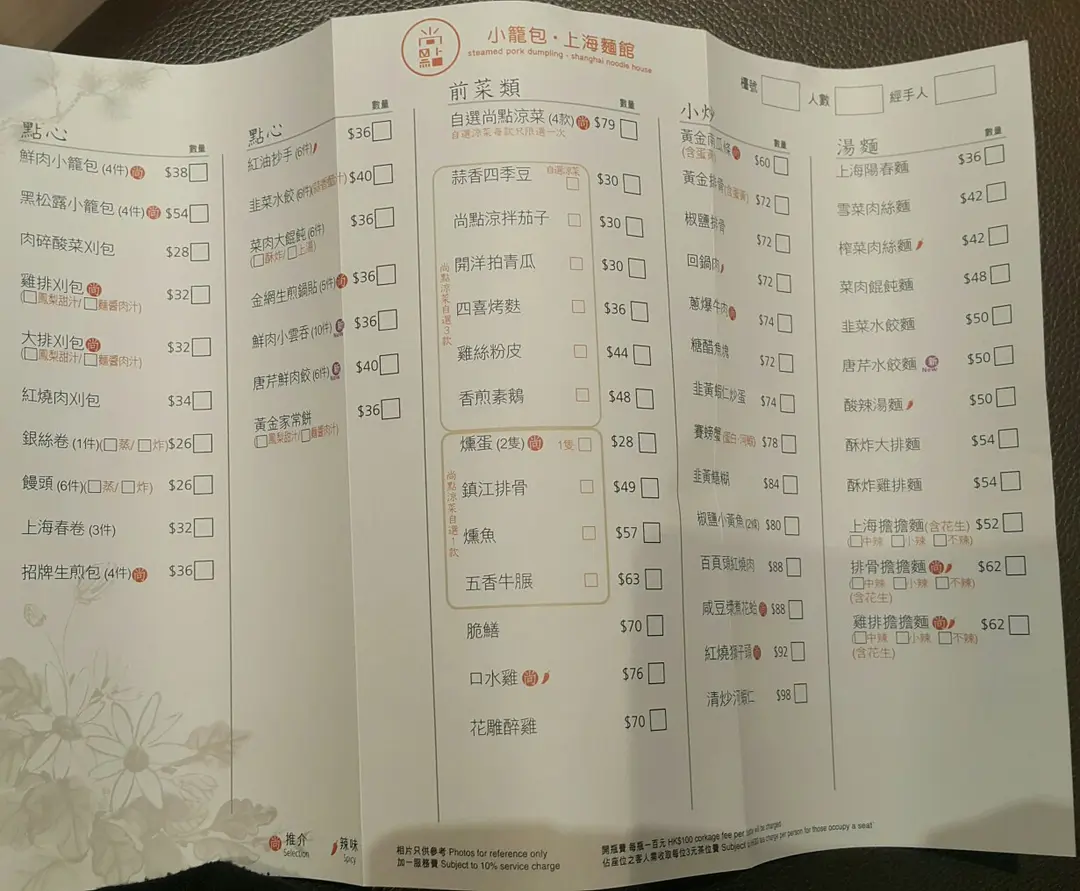 尚點
小籠包・上海麵館
steamed pork dumpling - shanghai noodle house
檯號
人數
經手人
點心
數量
鮮肉小籠包 (4件) 尚 $38
黑松露小籠包 (4件) 尚 $54
肉碎酸菜刈包 $28
雞排刈包 尚 $32
(鳳梨甜汁/ 麵醬肉汁)
大排刈包 尚 $32
(鳳梨甜汁/ 麵醬肉汁)
紅燒肉刈包 $34
銀絲卷 (1件)(蒸/ 炸) $26
饅頭 (6件)(蒸/ 炸) $26
上海春卷 (3件) $32
招牌生煎包 (4件) 尚 $36
點心
數量
紅油抄手 (6件) $36
韭菜水餃 $40
菜肉大餛飩 (6件) $36
(酥炸/ 上湯)
金網生煎鍋貼 (5件) 尚 $36
鮮肉小雲吞 (10件) 新 New $36
唐芹鮮肉餃 (6件) 新 New $40
黃金家常餅 $36
(鳳梨甜汁/ 麵醬肉汁)
前菜類
數量
自選尚點涼菜 (4款) 尚 $79
自選涼菜每款只限選一次
自選涼菜
尚點涼菜自選3款
蒜香四季豆 $30
尚點涼拌茄子 $30
開洋拍青瓜 $30
四喜烤麩 $36
雞絲粉皮 $44
香煎素鵝 $48
尚點涼菜自選1款
燻蛋 (2隻) 尚 1隻 $28
鎮江排骨 $49
燻魚 $57
五香牛𦟌 $63
脆鱔 $70
口水雞 尚 $76
花雕醉雞 $70
小炒
數量
黃金南瓜條 尚 $60
(含蛋黃)
黃金排骨 (含蛋黃) $72
椒鹽排骨 $72
回鍋肉 $72
蔥爆牛肉 尚 $74
糖醋魚塊 $72
韭黃蝦仁炒蛋 $74
賽螃蟹 (蛋白・河蝦) $78
韭黃鱔糊 $84
椒鹽小黃魚 (2條) $80
百頁紅燒肉 $88
咸豆漿煮花蛤 尚 $88
紅燒獅子頭 尚 $92
清炒河蝦仁 $98
湯麵
數量
上海陽春麵 $36
雪菜肉絲麵 $42
榨菜肉絲麵 $42
菜肉餛飩麵 $48
韭菜水餃麵 $50
唐芹水餃麵 新 New $50
酸辣湯麵 $50
酥炸大排麵 $54
酥炸雞排麵 $54
上海擔擔麵 (含花生) $52
(中辣 小辣 不辣)
排骨擔擔麵 尚 $62
(中辣 小辣 不辣)
(含花生)
雞排擔擔麵 尚 $62
(中辣 小辣 不辣)
(含花生)
尚 推介 Selection
辣味 Spicy
相片只供參考 Photos for reference only
加一服務費 Subject to 10% service charge
開瓶費 每瓶一百元 HK$100 corkage fee per bottle will be charged
佔座位之客人需收取每位3元茶位費 Subject to HK$3 tea charge per person for those occupy a seat